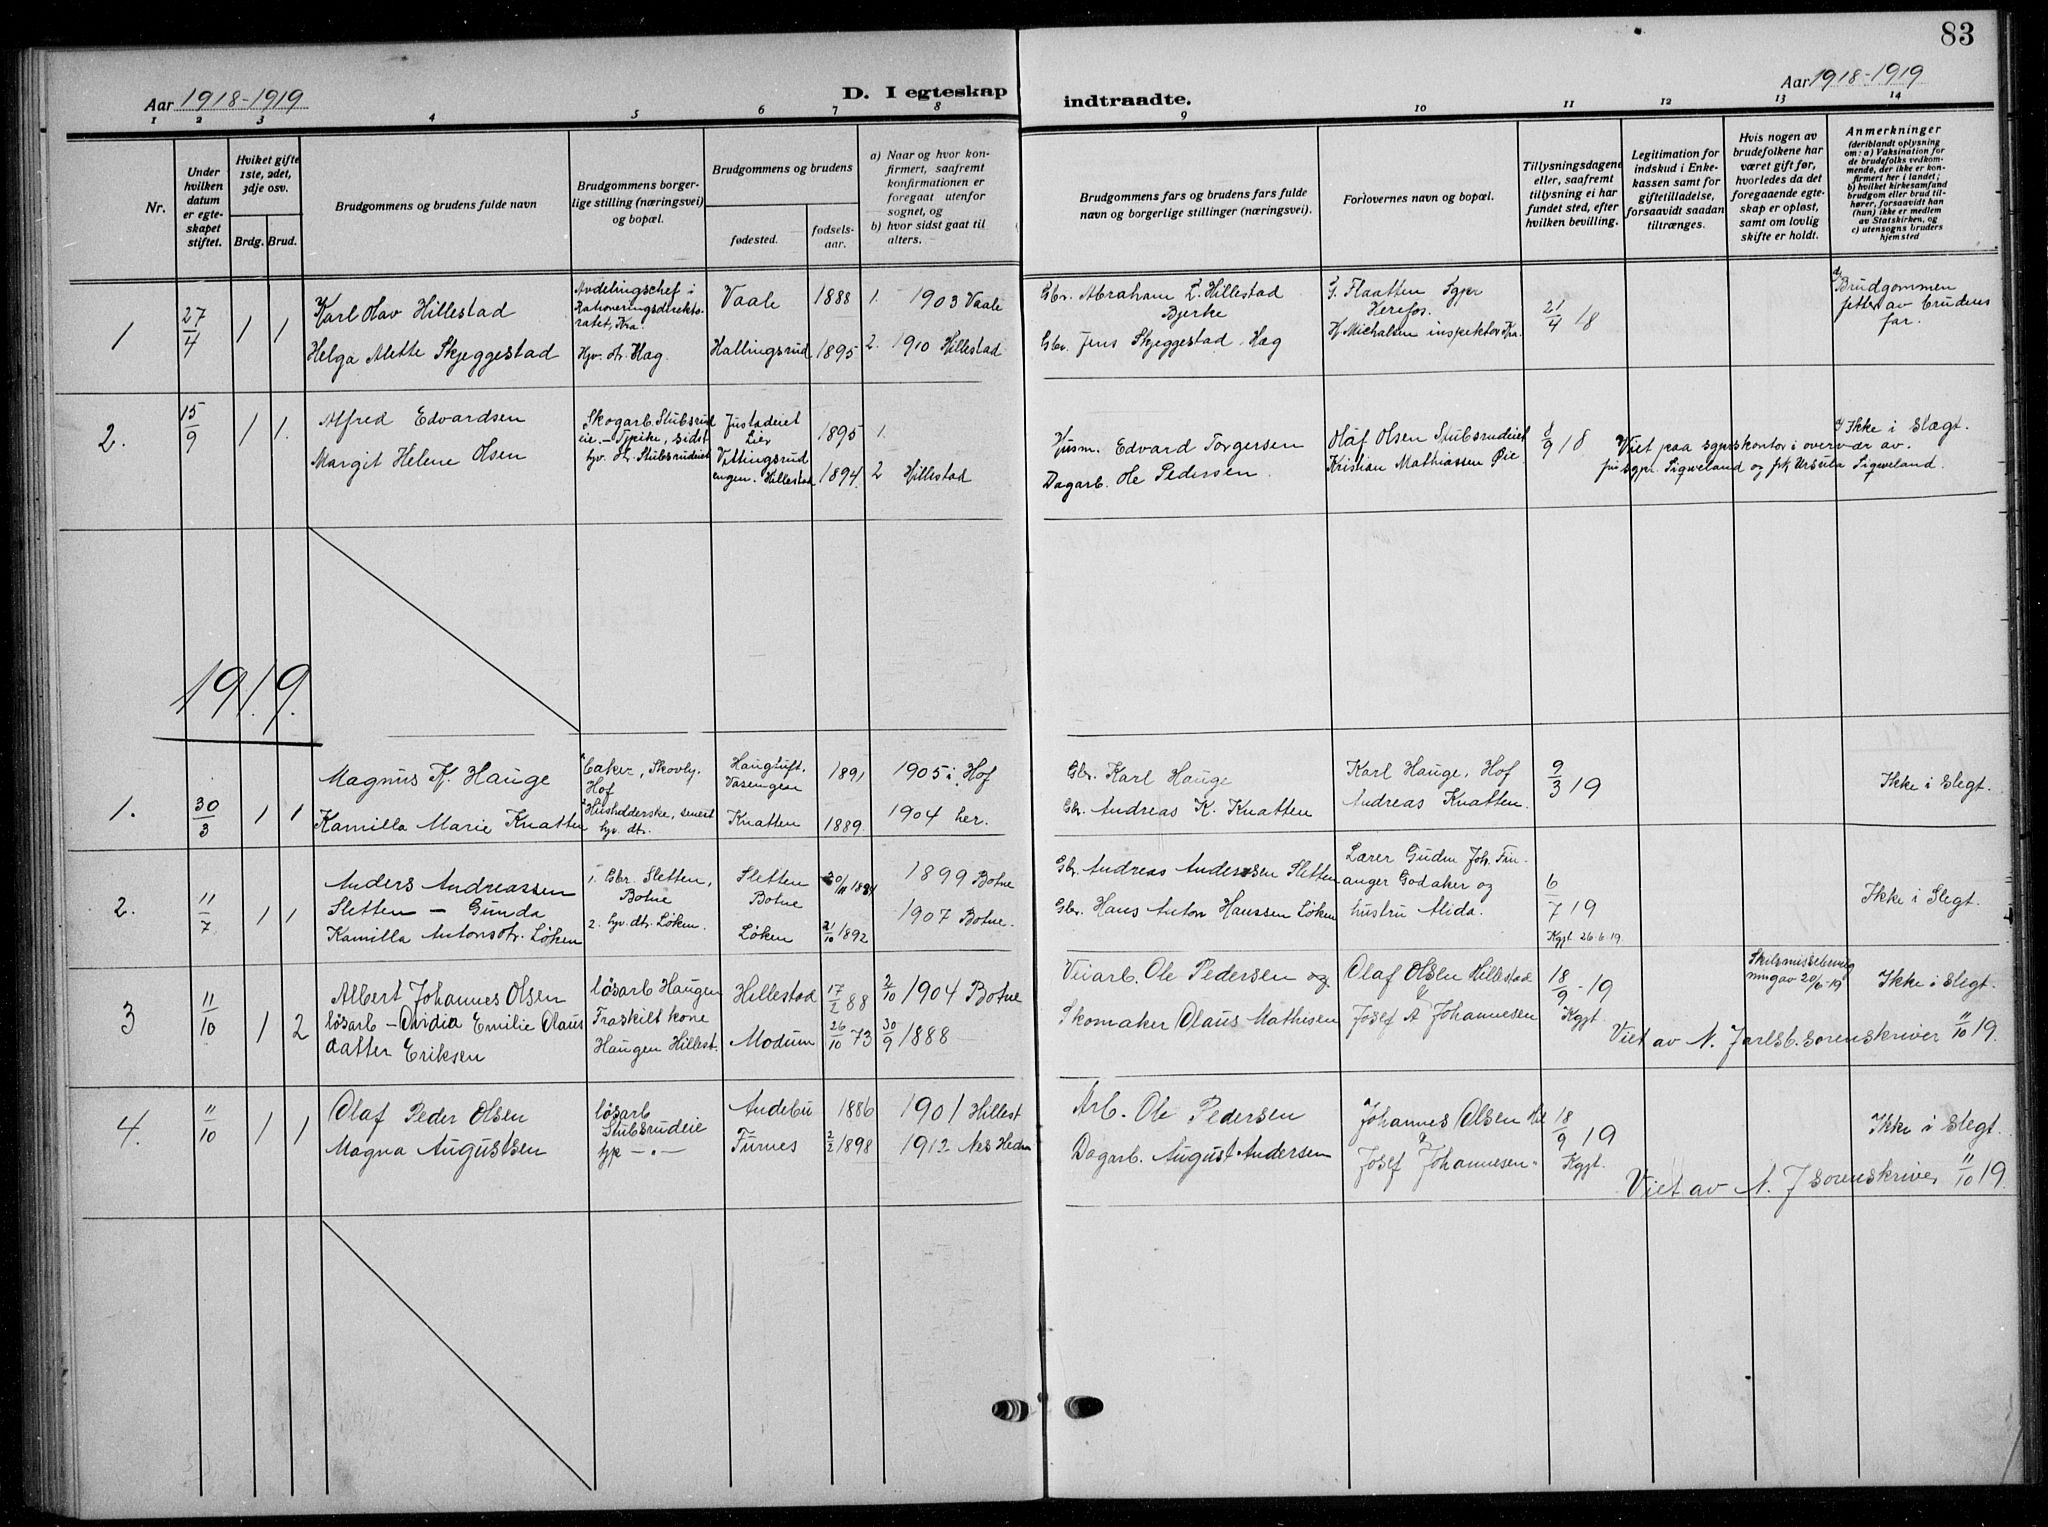 83
Aar 1918-1919
D. I egteskap
indtraadte.
Aar 1918-1919
1 2 3 4 5 6 7 8 9 10 11 12 13 14
Nr.
Under
hvilken
datum
er egte-
skapet
stiftet.
Hviket gifte
1ste, 2det,
3dje osv.
Brdg. Brud.
Brudgommens og brudens fulde navn
Brudgommens borger-
lige stilling (næringsvei)
og bopæl.
Brudgommens og brudens
fødested.
fødsels-
aar.
a) Naar og hvor kon-
firmert, saafremt
konfirmationen er
foregaat utenfor
sognet, og
b) hvor sidst gaat til
alters.
Brudgommens fars og brudens fars fulde
navn og borgerlige stillinger (næringsvei).
Forlovernes navn og bopæl.
Tillysningsdagene
eller, saafremt
tillysning ei har
fundet sted, efter
hvilken bevilling.
Legitimation for
indskud i Enke-
kassen samt for
giftetilladelse,
forsaavidt saadan
tiltrænges.
Hvis nogen av
brudefolkene har
været gift før,
hvorledes da det
foregaaende egte-
skap er opløst,
samt om lovlig
skifte er holdt.
Anmerkninger
(deriblandt oplysning
om: a) Vaksination for
de brudefolks vedkom-
mende, der ikke er kon-
firmert her i landet;
b) hvilket kirkesamfund
brudgom eller brud til-
hører, forsaavidt han
(hun) ikke er medlem
av Statskirken, og
c) utensogns bruders
hjemsted
1 27/4 1 1
Karl Olav Hillestad
Avdelingschef i
Rationeringsdirekto-
ratet, Kra.
Vaale 1888 1. 1903 Vaale
Gbr. Abraham L. Hillestad
Bjerke
G. Flaatten Sgpr
Herefos.
21/4 18
Brudgommen
fetter av brudens
far.
Helga Alette Skjeggestad
Hjv. dr. Hag.
Hallingsrud 1895 2. 1910 Hillestad
Gbr. Jens Skjeggestad. Hæg
H. Michalsen inspektør Kra.
2. 15/9 1 1.
Alfred Edvardsen
Skogarb. Stubsrud
eie. - Typike, sidst
hjv. dr. Stubsrudeiet
Justadeiet
Lier
1895 1.
Husm. Edvard Torgersen
Olaf Olsen Stubsrudeiet
8/9 18
Ikke i Slægt.
Margit Helene Olsen
Vittingsrud
engen. Hillestad
1894. 2 Hillestad
Dagarb. Ole Pedersen.
Kristian Mathiassen Øie
Viet paa sgprskontor i overvær av.
sgpr. Sigveland og frk Ursula Sigveland.
1919.
1. 30/3 1 1
Magnus K. Hauge
Baker, Skovly.
Hof
Haugtuft.
Vasengen
1891 1905 i Hof
Gbr. Karl Hauge
Karl Hauge, Hof
9/3 19
Ikke i Slegt.
Kamilla Marie Knatten
Husholderske, senest
hjv. dtr.
Knatten 1889. 1904 her.
Gbr. Andreas K. Knatten
Andreas Knatten.
2. 11/7 1 1
Anders Andreassen
Sletten - Gunda
Kamilla Antonsdtr. Løken
1. Gbr. Sletten,
Botne
2. hjv. dtr. Løken.
Sletten
Botne
Løken
1884
21/10 1892
1899 Botne
1907 Botne.
Gbr. Andreas Anderssen Sletten
Gbr. Hans Anton Hanssen Løken
Lærer Gudm Joh. Fin-
anger Godaker og
hustru Alida.
6/7 19
Kgjt. 26.6.19.
Ikke i Slegt.
3 11/10 1 2
Albert Johannes Olsen
løsarb - Ovidia Emilie Olaus
datter Eriksen
løsarb Haugen
Fraskilt kone
Haugen Hillest.
Hillestad
Modum
17/2 88
26/10 73
2/10 1904 Botne
30/9 1888
Veiarb. Ole Pedersen og
Skomaker Olaus Mathisen
Olaf Olsen Hillestad
&
Josef A Johannesen
18/9 - 19
Kgjt.
20/6-19
Ikke i Slegt.
Viet av N. Jarlsb. sorenskriver 11/10 19.
4. 11/10 1 1
Olaf Peder Olsen
Magna Augustsen
løsarb
Stubsrudeie
hjp - " -
Andebu
Furnes
1886
2/2 1898
1901 Hillest
1912 Nes Hedm
Arb. Ole Pedersen
Dagarb. August Andersen
Johannes Olsen
&
Josef Johannesen.
18/9 19
Kgjt.
Ikke i Slegt.
Viet av N. J sorenskriver 11/10 19.